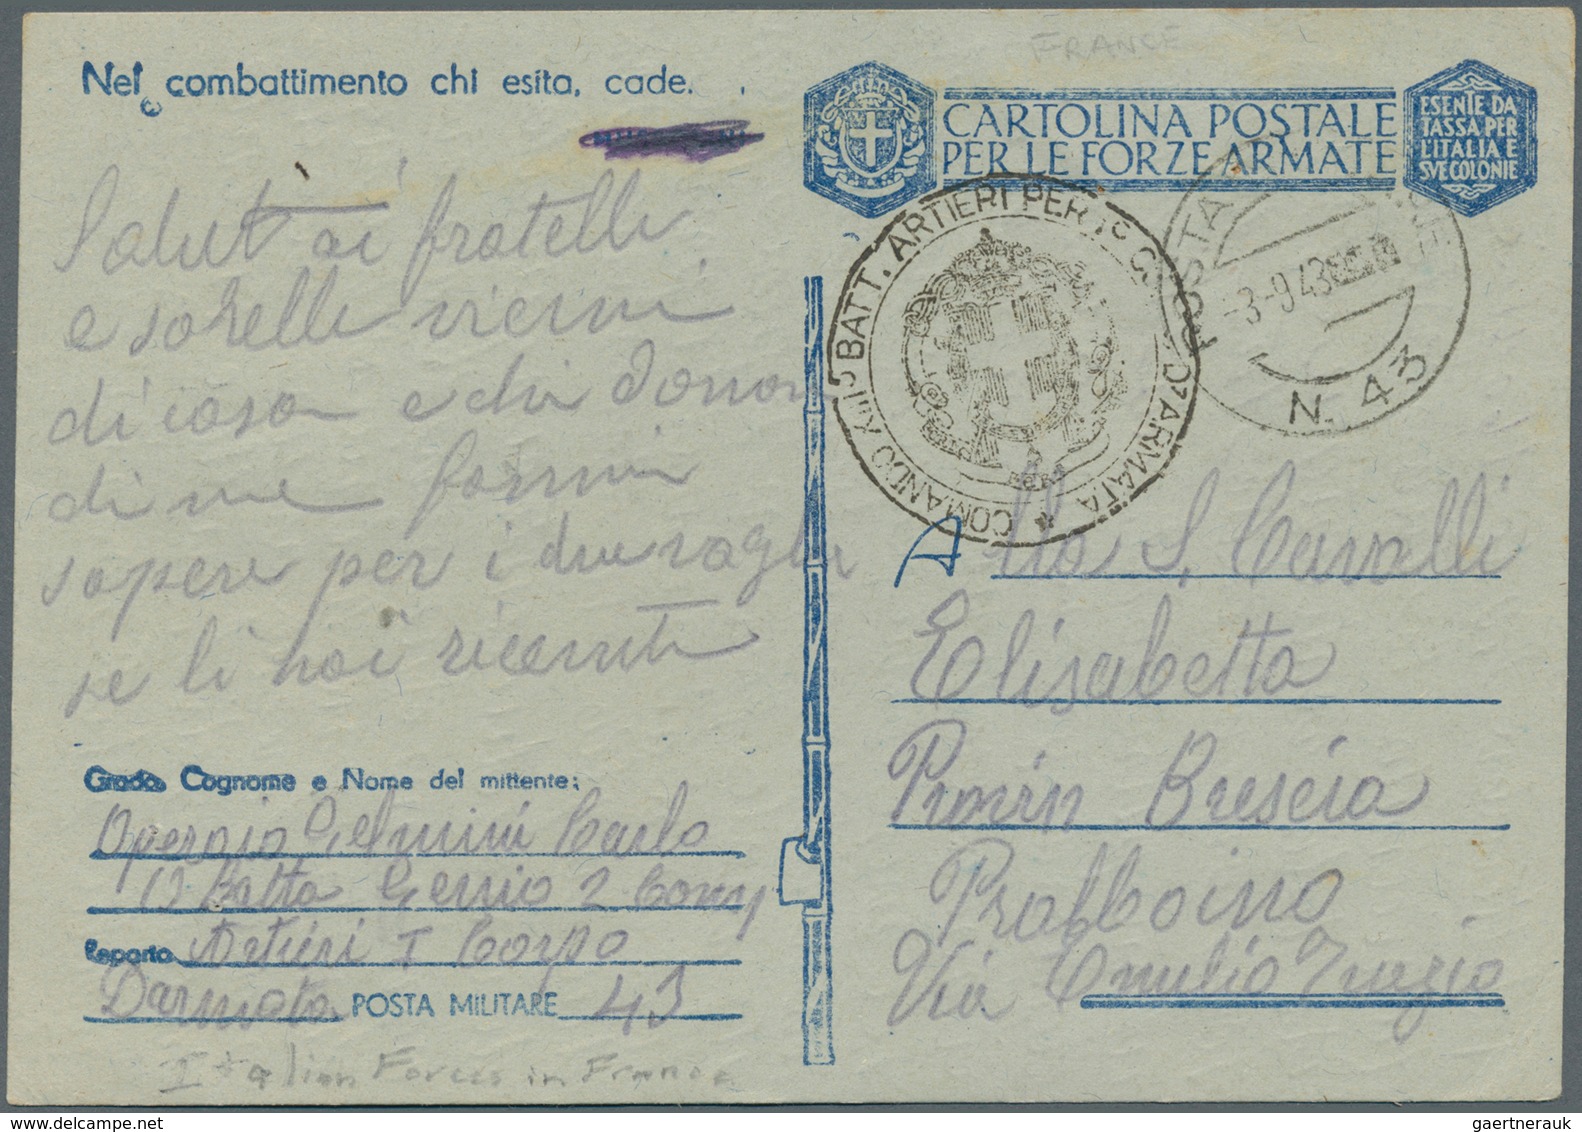 FRANCE
Nel combattimento chi esita, cade.
CARTOLINA POSTALE
PER LE FORZE ARMATE
ESENTE DA
TASSA PER
L'ITALIA E
SVE COLONIE
COMANDO XIII° BATT. ARTIERI PER 1° CORPO D'ARMATA
POSTA
-3-9 43
N. 43
Saluti ai fratelli
e sorelle vicini
di casa e chi
di me fammi
sapere per i due vaglia
se li hai ricevuti
Alla S. Cavalli
Elisabetta
Brescia
Pralboino
Via
Grado Cognome e Nome del mittente:
Operaio Gelmini Carlo
13 Batta Genio 2 Comp
Reparto Artieri I Corpo
Darmata POSTA MILITARE 43
Italian Forces in France
gaertnerauk / delcampe.net